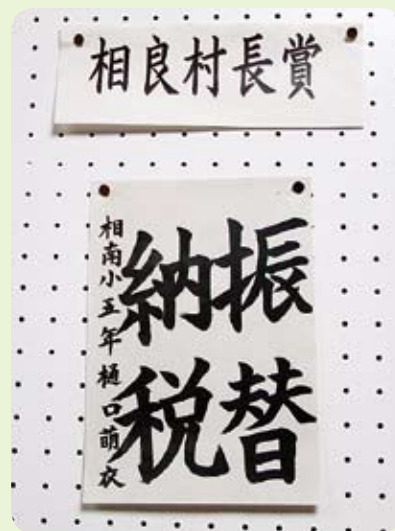 相良村長賞
振替
納税
相南小五年樋口萌衣